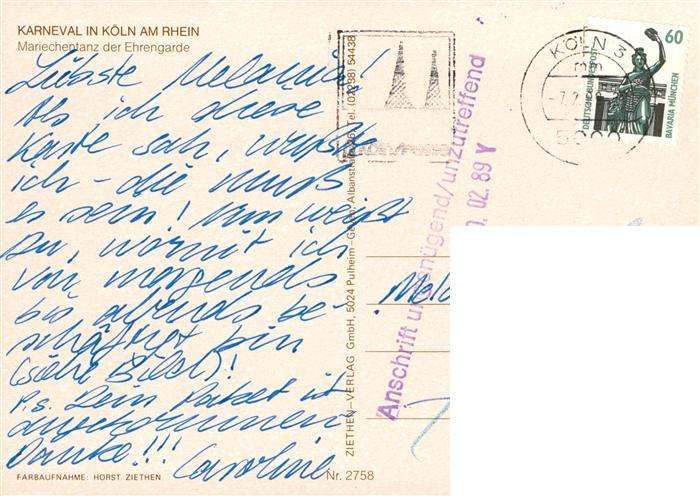 KARNEVAL IN KÖLN AM RHEIN
Mariechentanz der Ehrengarde
Liebste Melanie!
Als ich diese
Karte sah, wußte
ich - die muß
es sein! Nun weißt
Du, womit ich
von morgends
bis abends be-
schäftigt bin
(siehe Bild)!
P.s. Dein Paket ist
angekommen
Danke!!!
Caroline
FARBAUFNAHME: HORST ZIETHEN
Nr. 2758
ZIETHEN-VERLAG GmbH, 5024 Pulheim-Geyen, Albanstraße Tel. (02238) 54438
Anschrift ungenügend/unzutreffend
02. 89 Y
KÖLN 3
60
DEUTSCHE BUNDESPOST
BAYARIA MÜNCHEN
Mela